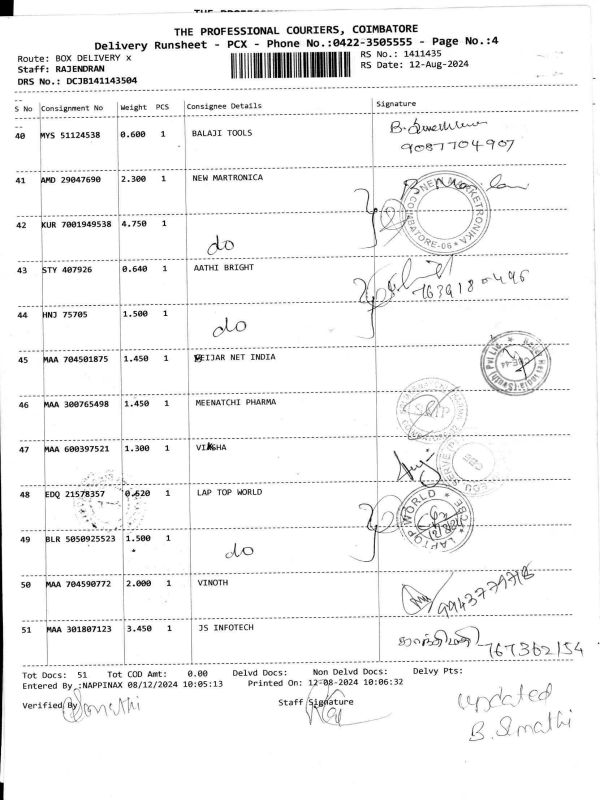 THE PROFESSIONAL COURIERS, COIMBATORE
Delivery Runsheet - PCX - Phone No.:0422-3505555 - Page No.:4
Route: BOX DELIVERY x RS No.: 1411435
Staff: RAJENDRAN RS Date: 12-Aug-2024
DRS No.: DCJB141143504
S No Consignment No Weight PCS Consignee Details Signature
40 MYS 51124538 0.600 1 BALAJI TOOLS
9087704907
41 AMD 29047690 2.300 1 NEW MARTRONICA
NEW MARKETRONIKA COIMBATORE-06
42 KUR 7001949538 4.750 1 do
43 STY 407926 0.640 1 AATHI BRIGHT
7639180496
44 HNJ 75705 1.500 1 do
45 MAA 704501875 1.450 1 EIJAR NET INDIA
46 MAA 300765498 1.450 1 MEENATCHI PHARMA
47 MAA 600397521 1.300 1
48 EDQ 21578357 0.620 1 LAP TOP WORLD
LAPTOP WORLD * CBE *
49 BLR 5050925523 1.500 1 do
*
50 MAA 704590772 2.000 1 VINOTH
51 MAA 301807123 3.450 1 JS INFOTECH
காந்திமதி 767362154
Tot Docs: 51 Tot COD Amt: 0.00 Delvd Docs: Non Delvd Docs: Delvy Pts:
Entered By :NAPPINAX 08/12/2024 10:05:13 Printed On: 12-08-2024 10:06:32
Verified By Staff Signature
updated
B. Sumathi